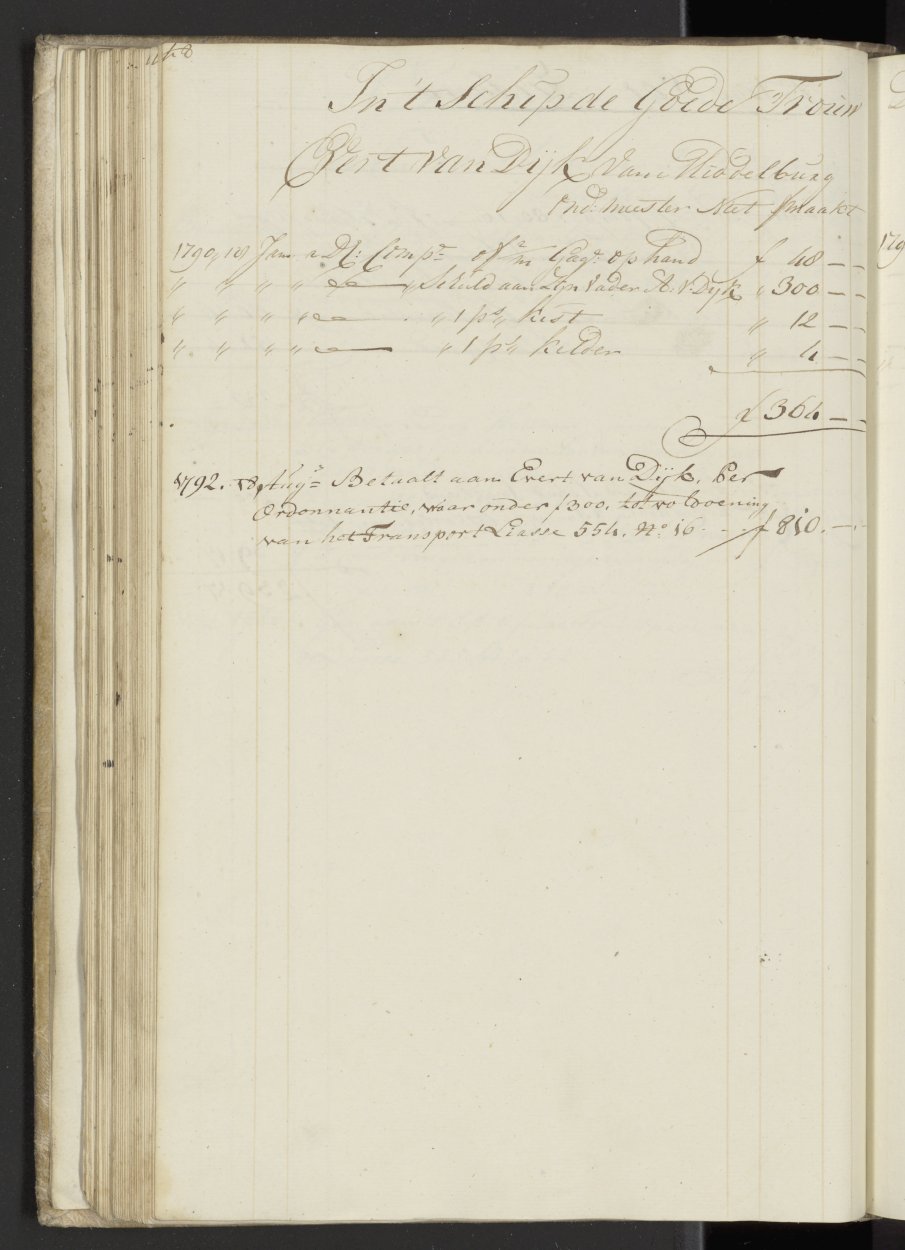 In't Schip de Goede Trouw
Evert van Dijk Van Middelburg
Ond: meester Niet gmaakt
1790, 18 Jan a D'E: Comp:e of 2/m Gage op hand f 48 – –
" " " " do " Schuld aan Zyn Vader A: V: Dyk " 300 – –
" " " " do " 1 ps, kist " 12 – –
" " " " do " 1 ps, kelder " 4 – –
f 364 – –
1792. 18, Aug:s Betaalt aan Evert van Dijk, Per
Ordonnantie, waar onder f 300, tot voldoening
van het Transport Liasse 554. No: 16 f 810. – –
179